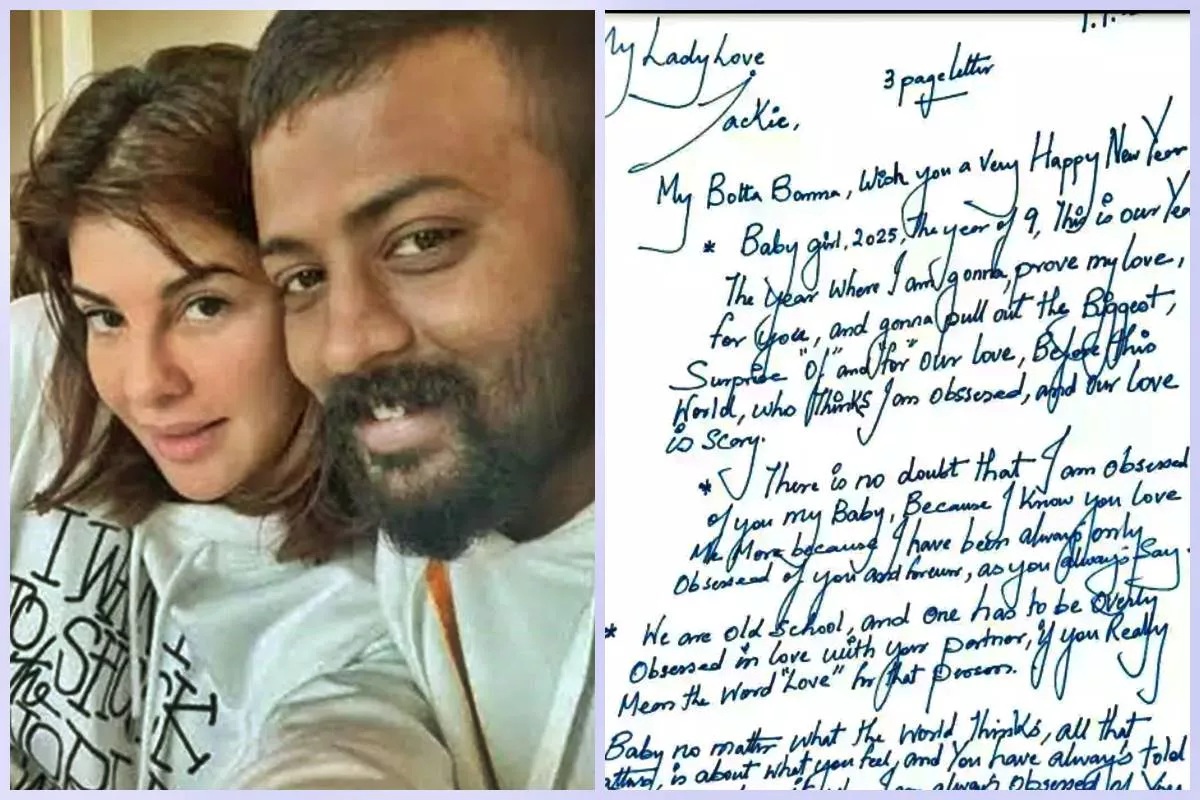 I WAN
TO SHO
me
My Lady Love
Jackie,
3 page letter
My Botta Bomma, Wish you a Very Happy New Year
* Baby girl, 2025, The year of 9, This is our Yea
The Year Where I am gonna, prove my love,
for you, and gonna pull out the Biggest,
Surprise "Of" and "for" Our love, Before this
World, who thinks I am obssesed, and our love
is Scary.
* There is no doubt that I am obsessed
of you my Baby, Because I Know you love
Me More because I have been always only
Obsessed of you and forever, as you always Say.
* We are old School, and one has to be Overly
Obsessed in love with your partner, if you Really
Mean the Word "Love" for that person.
Baby no matter what the World Thinks, all that
is about what you feel, and You have always told
I am always Obsessed of You